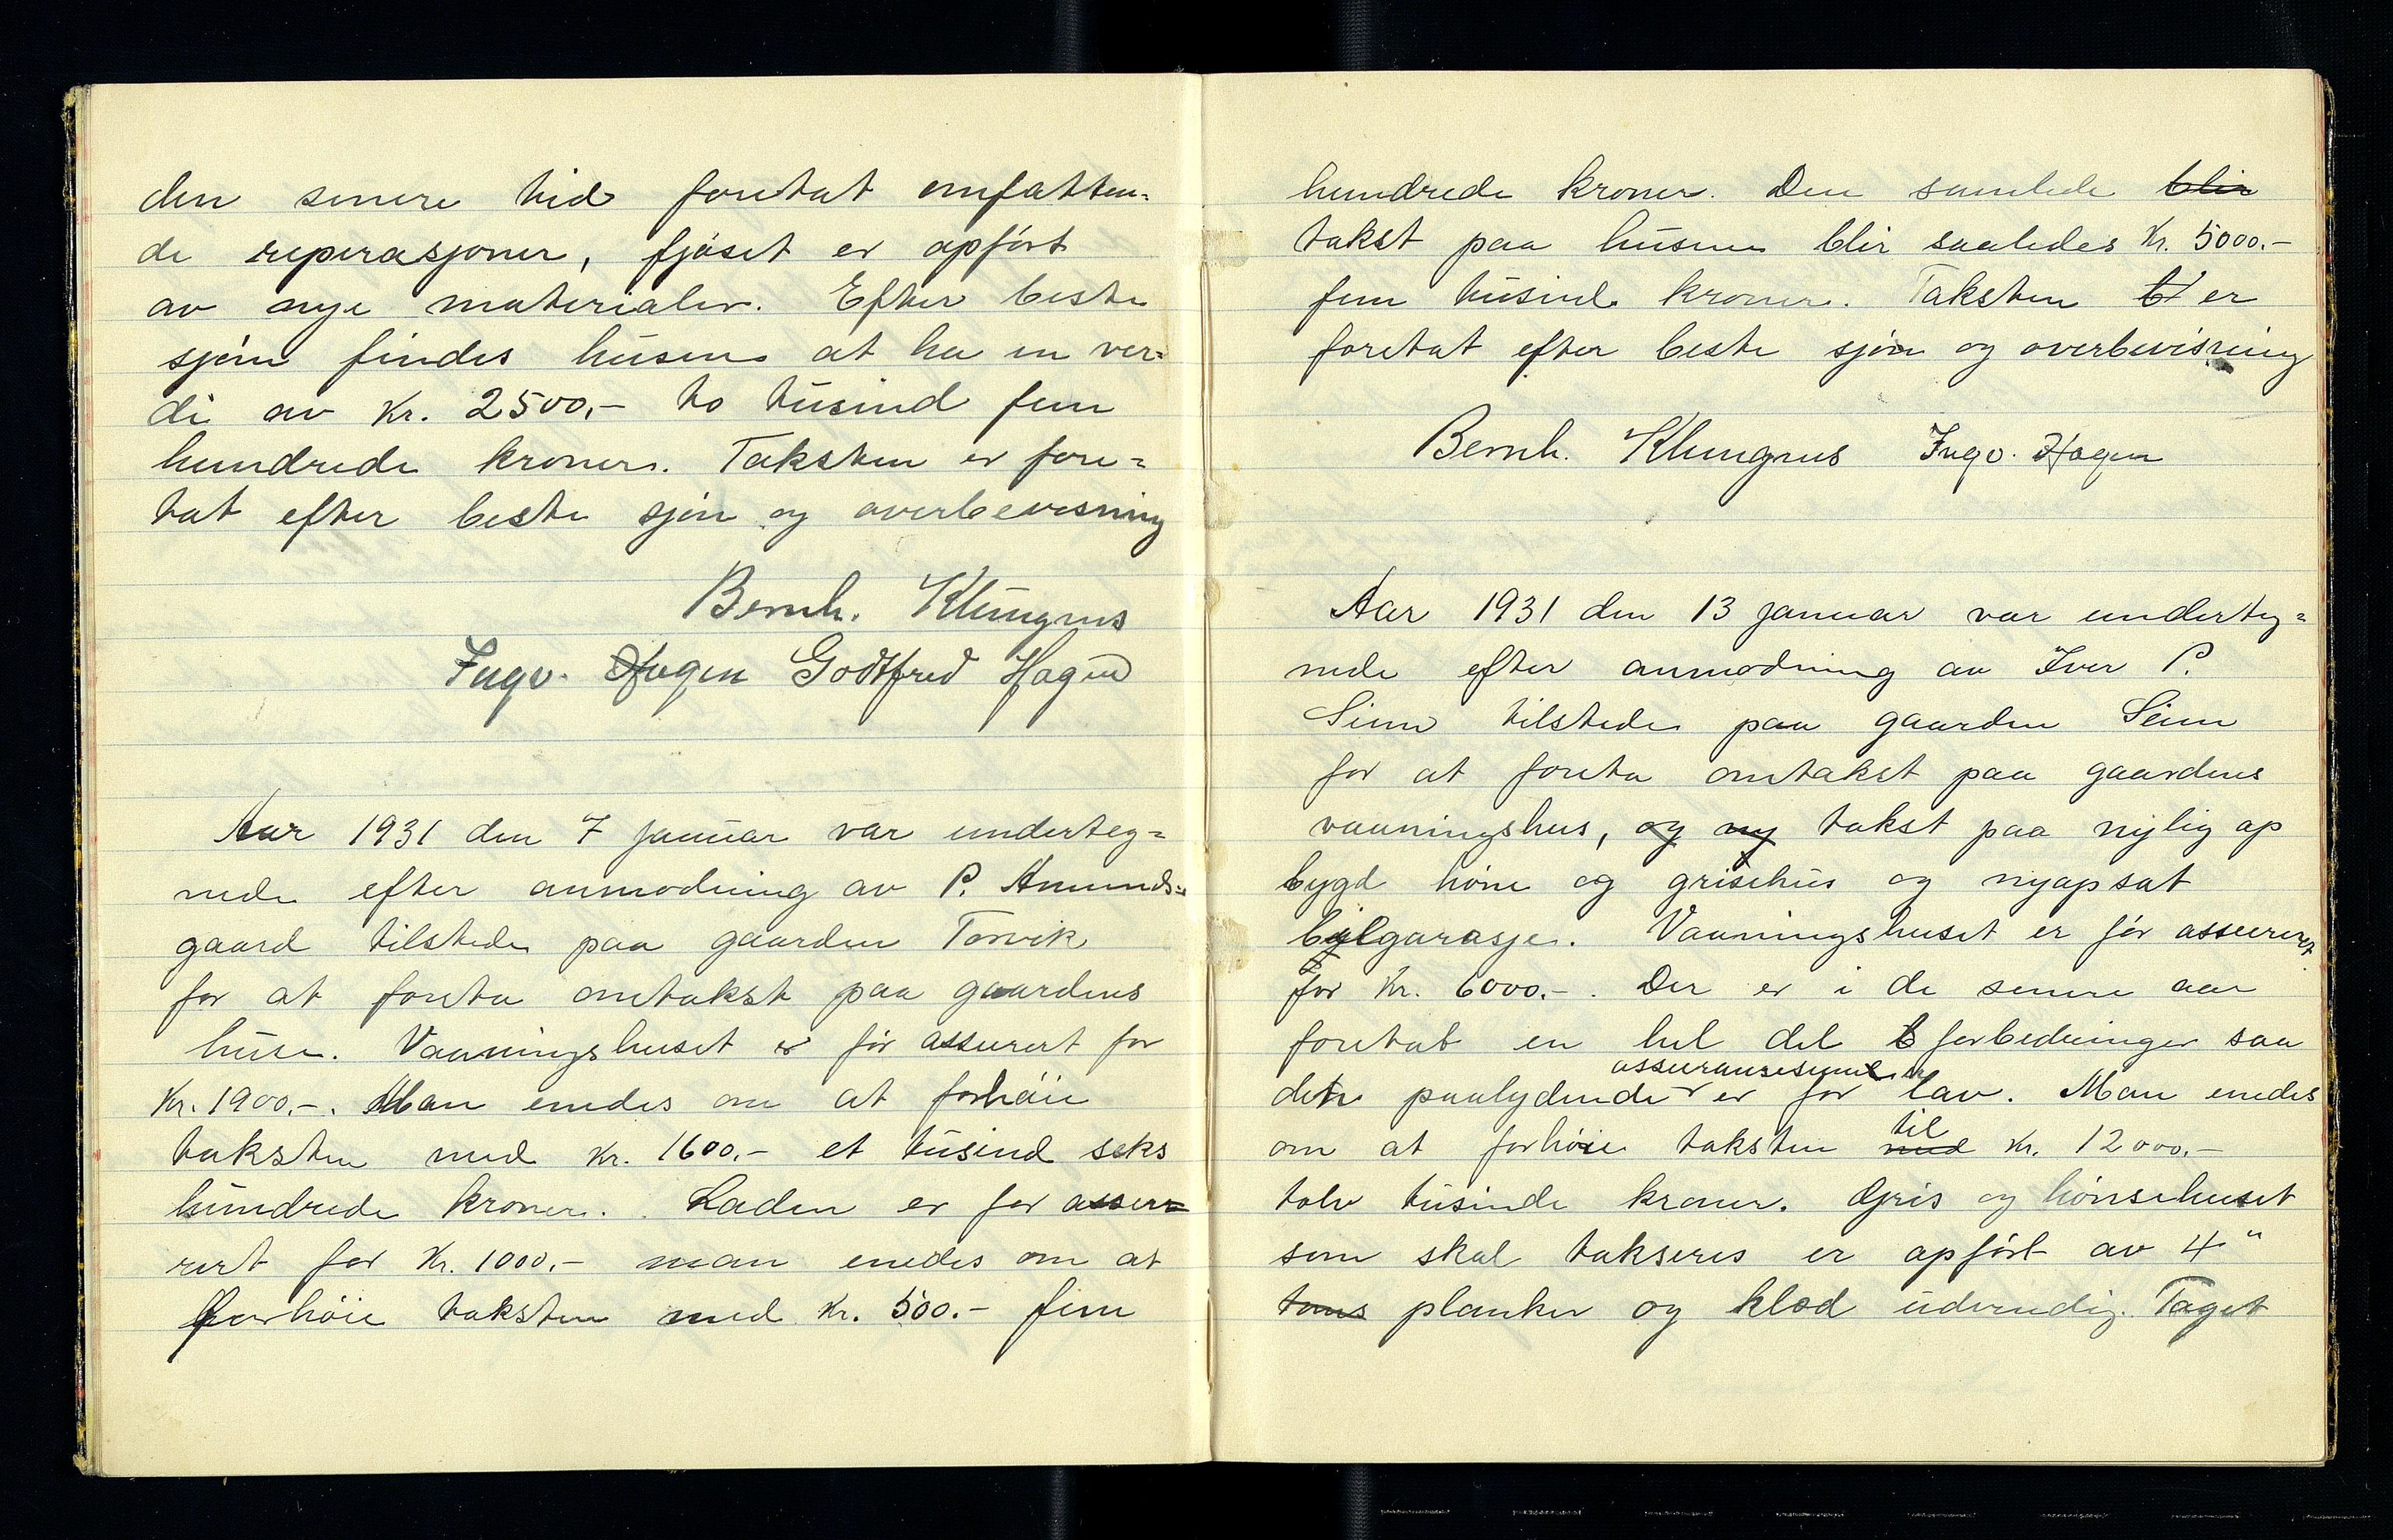 den senere tid foretat omfatten-
de reperasjoner, fjøset er opført
av nye materialer. Efter beste
sjøn findes husene at ha en ver-
di av Kr. 2500,- to tusind fem
hundrede kroner. Taksten er fore-
tat efter beste sjøn og overbevisning
Bernh. Klungnes
Ingv. Hagen Godtfred Hagen
Aar 1931 den 7 januar var underteg-
nede efter anmodning av P. Amunds-
gaard tilstede paa gaarden Torvik
for at foreta omtakst paa gaardens
huse. Vaaningshuset er før assurert for
Kr. 1900.-. Man enedes om at forhøie
taksten med Kr. 1600.- et tusind seks
hundrede kroner. Laden er før assur-
rert for Kr. 1000.- man enedes om at
forhøie taksten med Kr. 500.- fem
hundrede kroner. Den samlede blir
takst paa husene blir saaledes Kr. 5000.-
fem tusind kroner. Taksten bl er
foretat efter beste sjøn og overbevisning
Bernh. Klungnes Ingv. Hagen
Aar 1931 den 13 januar var underteg-
nede efter anmodning av Iver P.
Seim tilstede paa gaarden Seim
for at foreta omtakst paa gaardens
vaaningshus, og ny takst paa nylig op
bygd høne og grisehus og nyopsat
bilgarasje. Vaaningshuset er før assurert
for Kr. 6000.-. Der er i de senere aar
foretat en hel del b forbedringer saa
assuransesum
den paalydende er for lav. Man enedes
til
om at forhøie taksten med Kr. 12000.-
tolv tusinde kroner. Gris og hønsehuset
som skal takseres er opført av 4"
toms planker og klæd udvendig. Taget